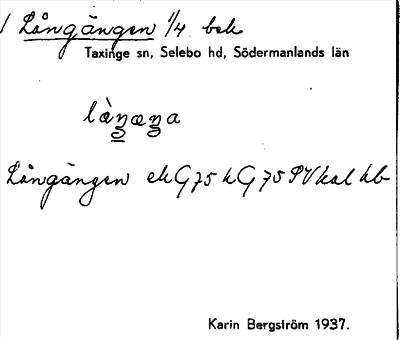 1 Långängen 1/4 bok
Taxinge sn, Selebo hd, Södermanlands län
Långängen ek G 75 k G 75 SV kal kb
Karin Bergström 1937.